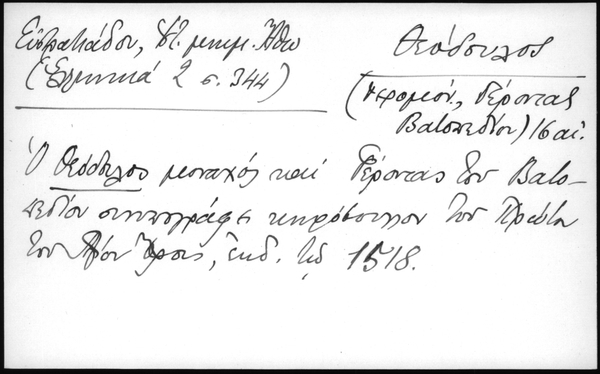 Εὐστρατιάδου, Ἱστ. μνημ. Ἄθω
(Ἑλληνικά 2 σ. 344)
Θεόδουλος
(ἱερομόν., Γέροντας
Βατοπεδίου) 16 αἰ.
Ὁ Θεόδουλος μοναχός καί Γέροντας τοῦ Βατο-
πεδίου συνυπογράφει κηρόβουλλον τοῦ Πρώτου
τοῦ Ἁγίου Ὄρους, ἐκδ. τῷ 1518.